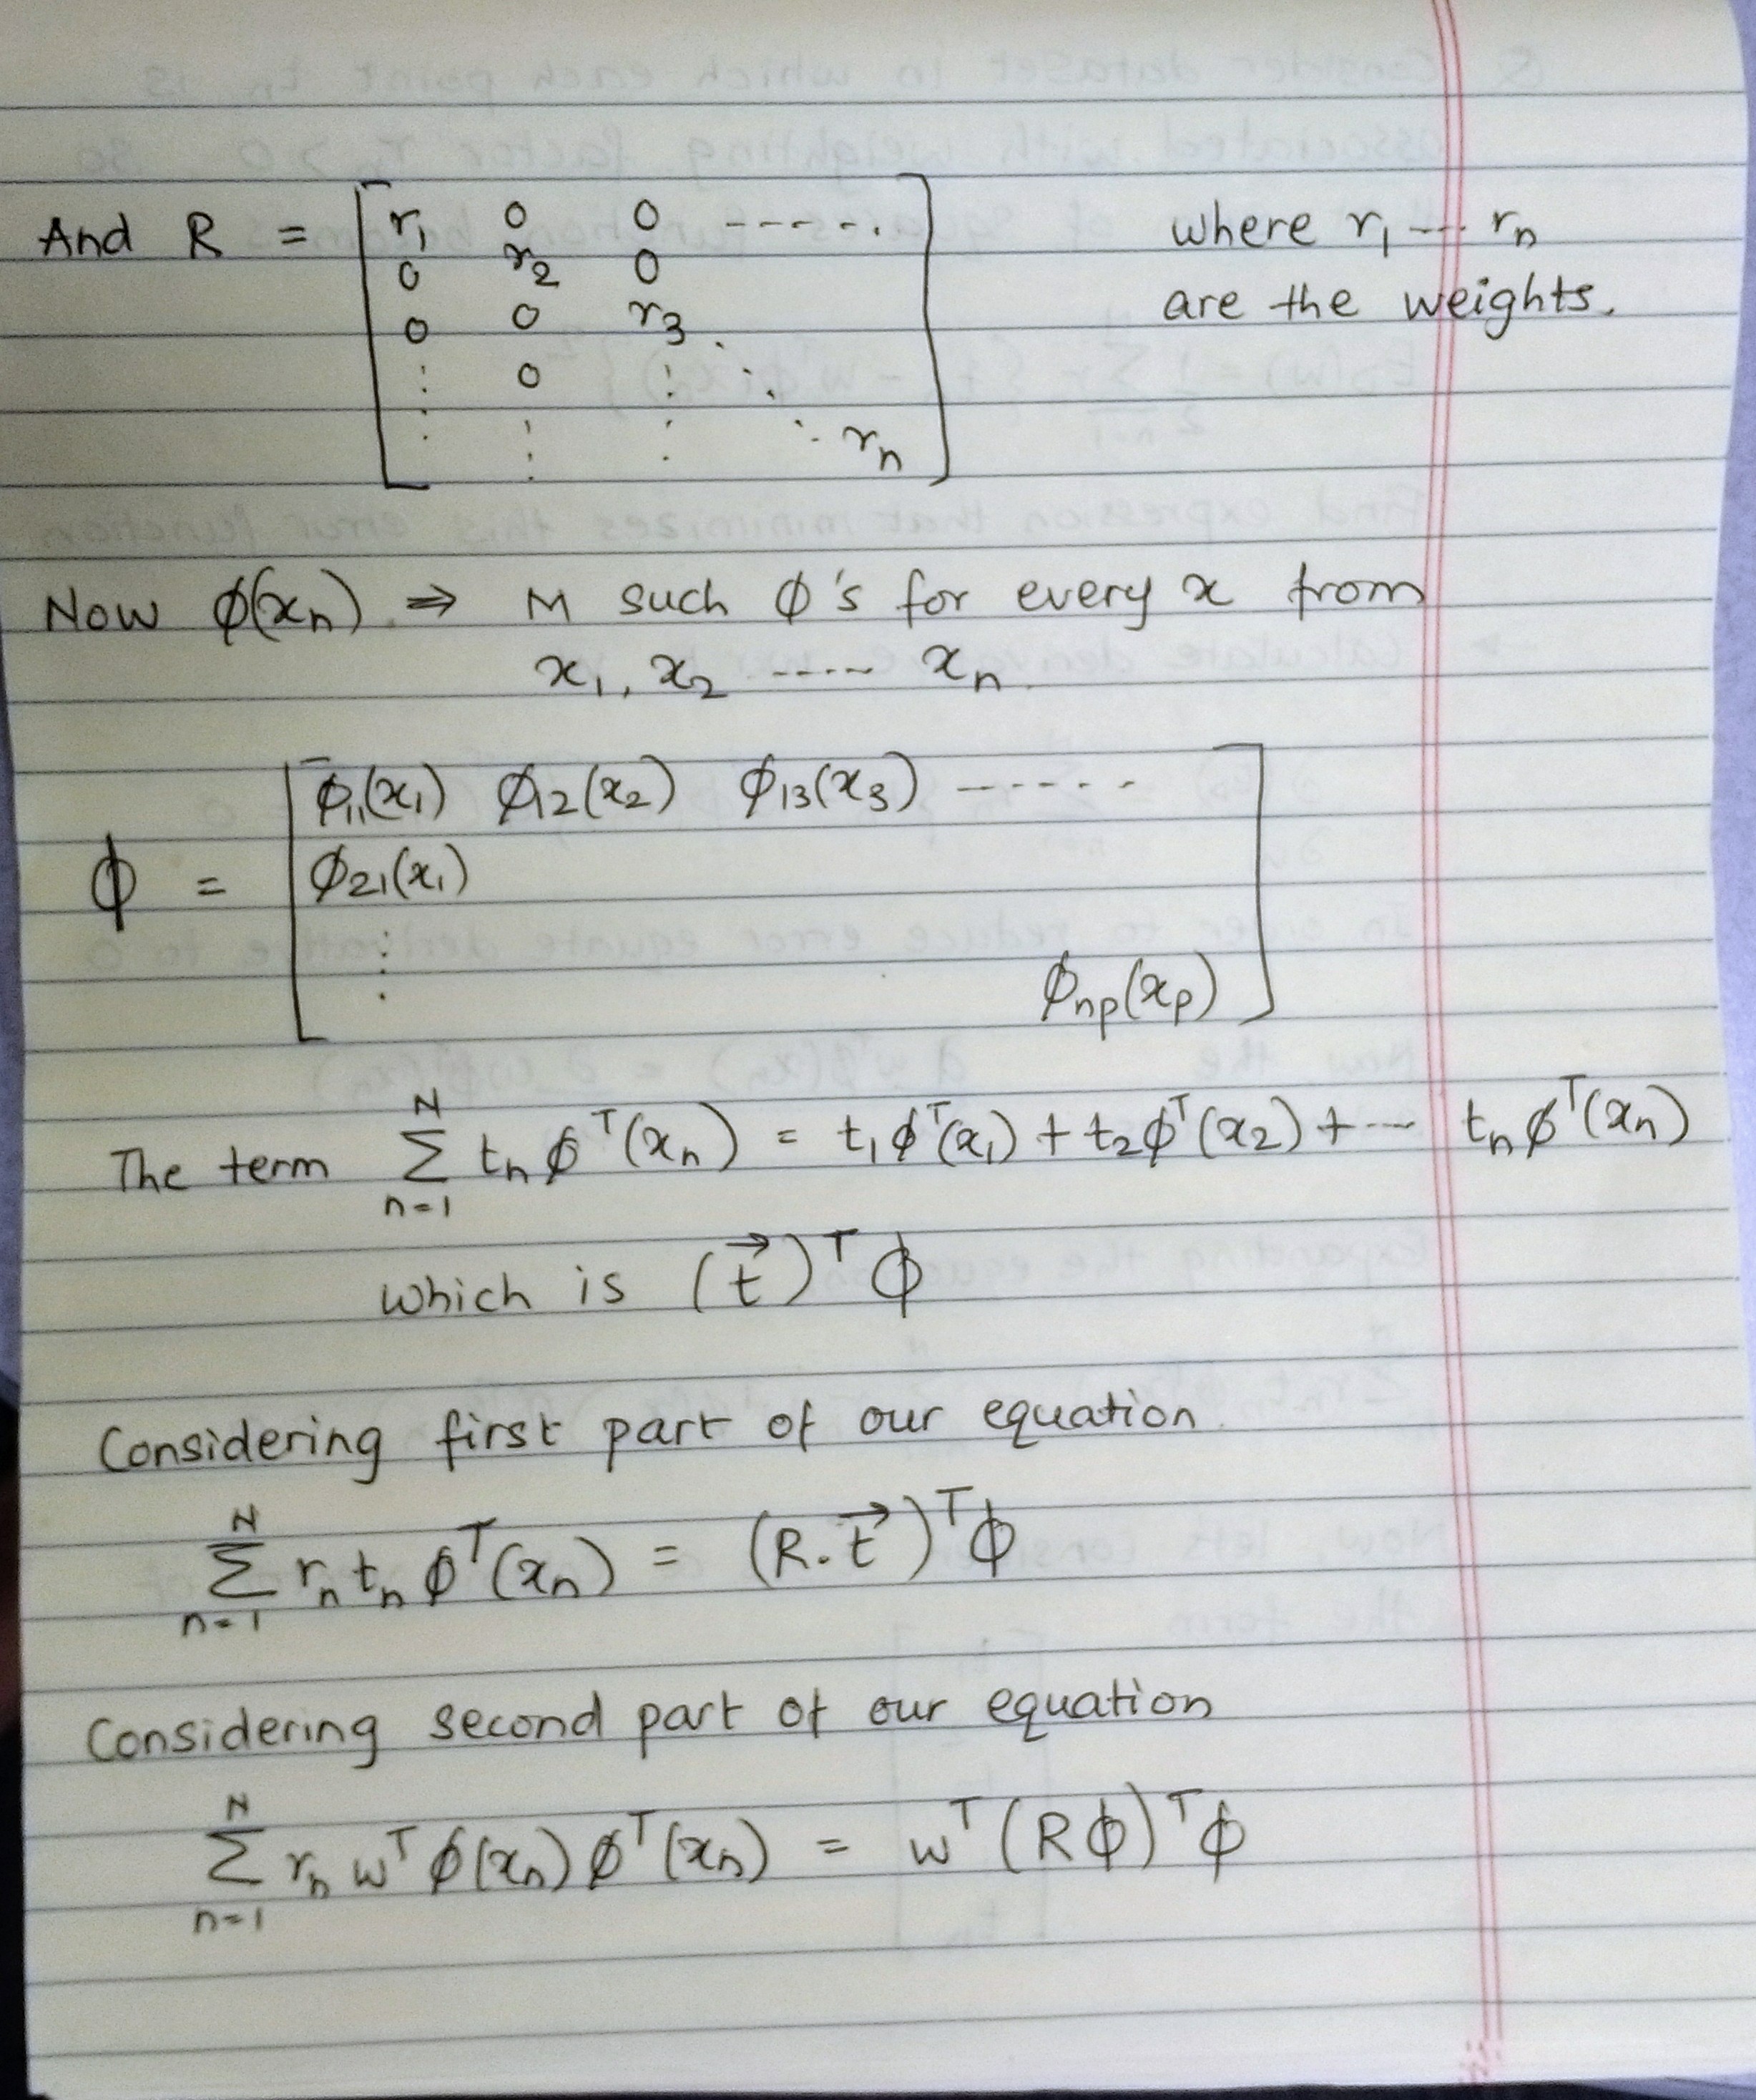 And R = [ r₁ 0 0 ------. where r₁ --- rₙ
0 r₂ 0
0 0 r₃ . are the weights.
⋮ 0 ⋮ ⋱
⋮ ⋮ ⋮ ⋱ rₙ ]
Now ϕ(xₙ) ⇒ M such ϕ's for every x from
x₁, x₂ ----- xₙ
ϕ = [ ϕ₁₁(x₁) ϕ₁₂(x₂) ϕ₁₃(x₃) ------
ϕ₂₁(x₁)
⋮
ϕₙₚ(xₚ) ]
The term Σₙ₌₁ᴺ tₙ ϕᵀ(xₙ) = t₁ϕᵀ(x₁) + t₂ϕᵀ(x₂) + --- tₙϕᵀ(xₙ)
which is (t⃗)ᵀ ϕ
Considering first part of our equation.
Σₙ₌₁ᴺ rₙ tₙ ϕᵀ(xₙ) = (R.t⃗)ᵀ ϕ
Considering second part of our equation
Σₙ₌₁ᴺ rₙ wᵀ ϕ(xₙ) ϕᵀ(xₙ) = wᵀ(Rϕ)ᵀ ϕ